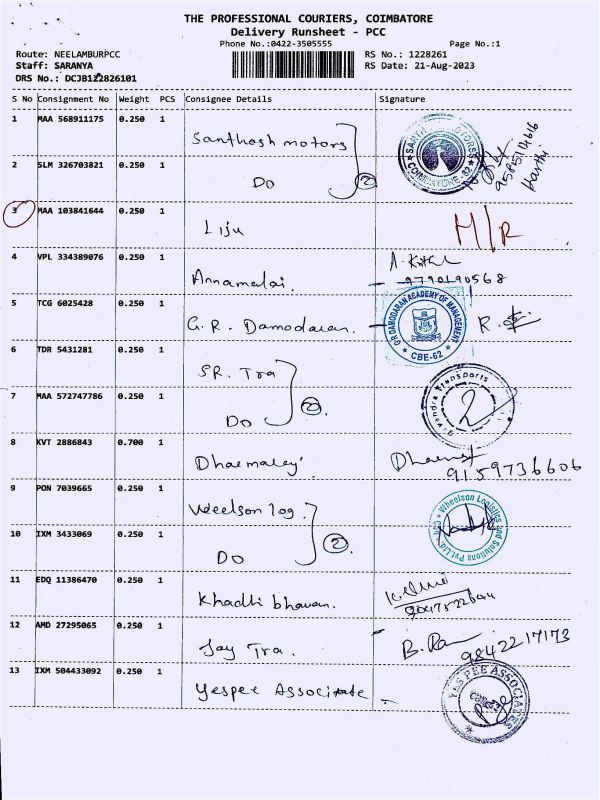 THE PROFESSIONAL COURIERS, COIMBATORE
Delivery Runsheet - PCC
Phone No.:0422-3505555 Page No.:1
Route: NEELAMBURPCC RS No.: 1228261
Staff: SARANYA RS Date: 21-Aug-2023
DRS No.: DCJB122826101
S No Consignment No Weight PCS Consignee Details Signature
1 MAA 568911175 0.250 1 Santhosh motors
COIMBATORE-62
2 SLM 326703821 0.250 1 Do 2
3 MAA 103841644 0.250 1 Liju M/R
4 VPL 334389076 0.250 1 Annamalai. 9790190568
5 TCG 6025428 0.250 1 G. R. Damodaran.
G R DAMODARAN ACADEMY OF MANAGEMENT
CBE-62
6 TDR 5431281 0.250 1 SR. Tra
7 MAA 572747786 0.250 1 Do 2 Transports
8 KVT 2886843 0.700 1 9159736606
9 PON 7039665 0.250 1 Weelson log.
Wheelson Logistics and Solutions Pvt.Ltd.
10 IXM 3433069 0.250 1 Do 2
11 EDQ 11386470 0.250 1 Khadhi bhavan.
12 AMD 27295065 0.250 1 Jay Tra. 9842217173
13 IXM 504433092 0.250 1 Yespee Associate
YESPEE ASSOCIATES